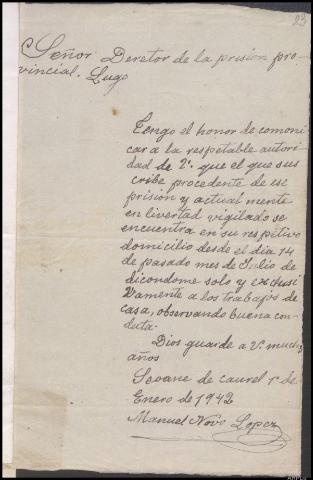 23
Señor Deretor de la prision pro-
vincial. Lugo
Tengo el honor de comoni
car a la respetable autori
dad de V. que el que sus
cribe procedente de esc
prisión y actual mente
en livertad vigilado se
encuentra en su respetivo
domicilio desde el dia 14
de pasado mes de Julio de
dicondome solo y exclusi
Vamente a los trabajos de
casa, observando buena con-
duta.
Dios guarde a V. muchos
años
Seoane de caurel 1º de
Enero de 1942
Manuel Novo Lopez